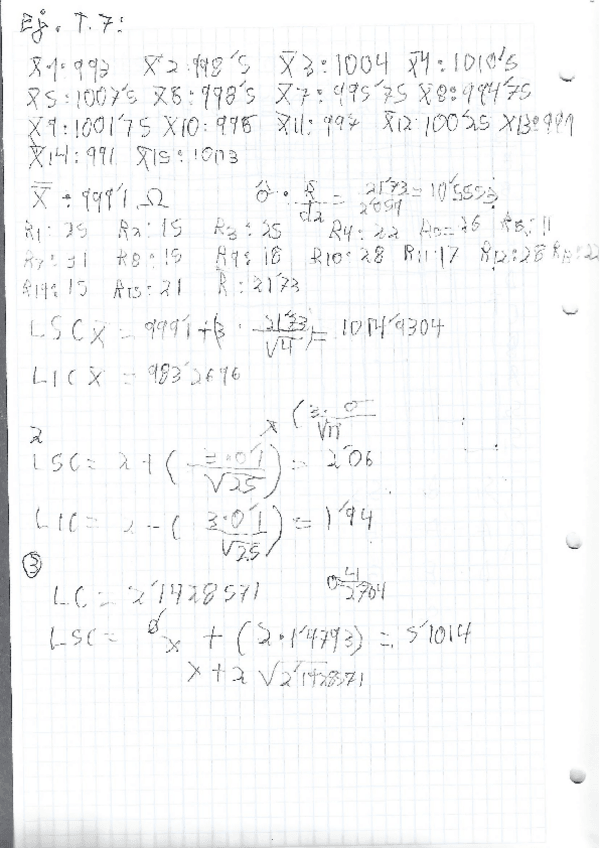 Ej. T.7:
X̄1: 993 X̄2: 998'5 X̄3: 1004 X̄4: 1010'5
X̄5: 1007'5 X̄6: 998'5 X̄7: 995'75 X̄8: 994'75
X̄9: 1001'75 X̄10: 998 X̄11: 997 X̄12: 1002'5 X̄13: 999
X̄14: 991 X̄15: 1003
X̿ : 999'1 Ω σ̂ : R̄/d2 = 21'73/2'059 = 10'5553
R1: 25 R2: 15 R3: 25 R4: 22 R6: 11
R8: 15 R9: 18 R10: 28 R11: 17 R12: 28 R13: 22
R14: 15 R15: 21 R̄: 21'73
LSCX̄ = 999'1 + (3 · 21'73/√4) = 1014'9304
LICX̄ = 983'2696
x (3·σ/√n)
2
LSC = 2 + (3·0'1/√25) = 2'06
LIC = 2 - (3·0'1/√25) = 1'94
3
LC = 2'1428571
LSC = x + (2·1'4793) = 5'1014
x + 2 √2'1428571